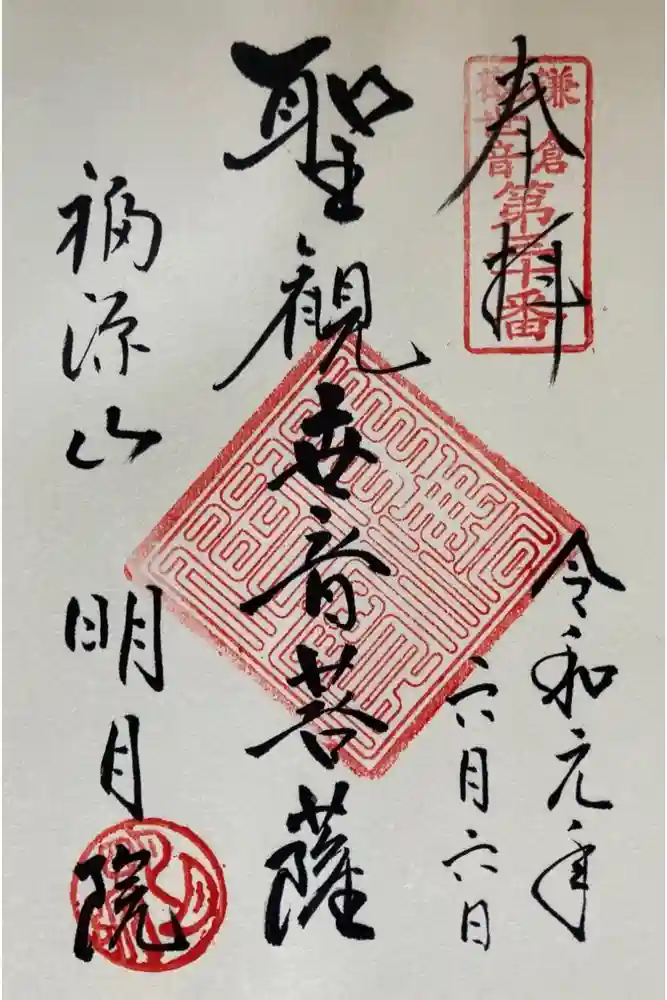 奉拝
鎌倉
観世音
第三十番
令和元年
六月六日
聖観世音菩薩
福源山
明月院